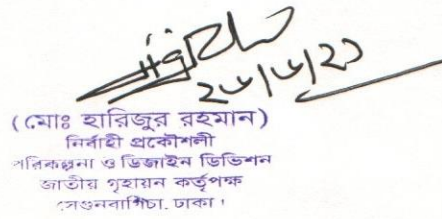 (মোঃ হারিজুর রহমান)
নির্বাহী প্রকৌশলী
পরিকল্পনা ও ডিজাইন ডিভিশন
জাতীয় গৃহায়ন কর্তৃপক্ষ
সেগুনবাগিচা, ঢাকা।